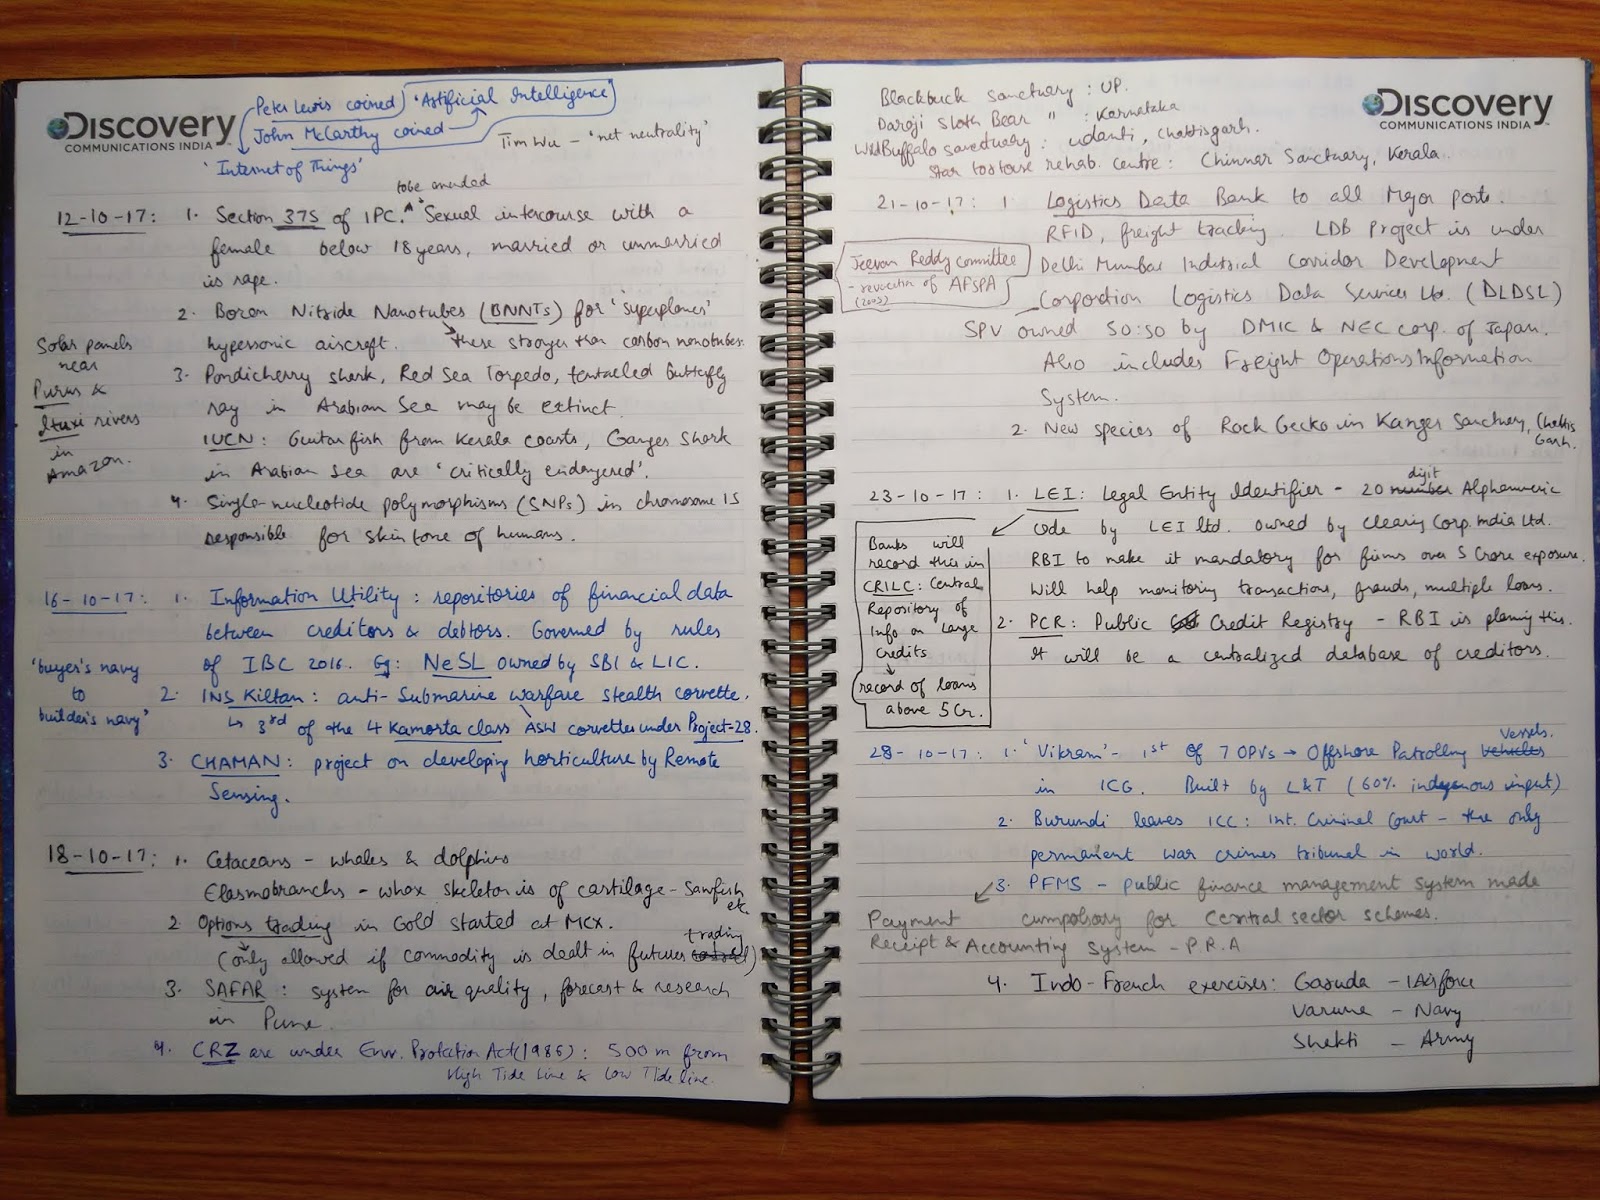 Discovery
COMMUNICATIONS INDIA
Peter Lewis coined 'Artificial Intelligence'
John McCarthy coined
'Internet of Things'
Tim Wu - 'net neutrality'
12-10-17: 1. Section 375 of IPC. ^ to be amended Sexual intercourse with a
female below 18 years, married or unmarried
is rape.
2. Boron Nitride Nanotubes (BNNTs) for 'superplanes'
hypersonic aircraft. these stronger than carbon nanotubes.
3. Pondicherry shark, Red Sea Torpedo, tentacled Butterfly
ray in Arabian Sea may be extinct.
IUCN: Guitarfish from Kerala coasts, Ganges Shark
in Arabian Sea are 'critically endangered'.
4. Single-nucleotide polymorphisms (SNPs) in chromosome 15
responsible for skin tone of humans.
Solar panels
near
Purus &
Ituxi rivers
in
Amazon.
16-10-17: 1. Information Utility: repositories of financial data
between creditors & debtors. Governed by rules
of IBC 2016. Eg: NeSL owned by SBI & LIC.
2. INS Kiltan: anti-Submarine warfare stealth corvette.
↳ 3rd of the 4 Kamorta class ASW corvettes under Project-28.
3. CHAMAN: project on developing horticulture by Remote
Sensing.
'buyer's navy
to
builder's navy'
18-10-17: 1. Cetaceans - whales & dolphins
Elasmobranchs - whose skeleton is of cartilage - Sawfish
etc.
2 Options trading in Gold started at MCX.
(only allowed if commodity is dealt in futures trading)
3. SAFAR: system for air quality, forecast & research
in Pune.
4. CRZ are under Env. Protection Act(1986): 500 m from
High Tide Line & Low Tide line.
Discovery
COMMUNICATIONS INDIA
Blackbuck Sanctuary: UP.
Daroji Sloth Bear " : Karnataka
Wild Buffalo sanctuary: Udanti, Chattisgarh.
Star tortoise rehab. centre: Chinnar Sanctuary, Kerala.
21-10-17: 1 Logistics Data Bank to all Major ports.
RFID, freight tracking. LDB Project is under
Delhi Mumbai Industrial Corridor Development
Corportion Logistics Data Services Ltd. (DLDSL)
SPV owned 50:50 by DMIC & NEC corp. of Japan.
Also includes Freight Operations Information
System.
2. New species of Rock Gecko in Kanger Sanctuary, Chattis
Garh.
Jeevan Reddy committee
- revocation of AFSPA
(2005)
23-10-17: 1. LEI: Legal Entity Identifier - 20 digit Alphanumeric
code by LEI ltd. owned by Clearing Corp. India Ltd.
RBI to make it mandatory for firms over 5 Crore exposure.
Will help monitoring transactions, frauds, multiple loans.
2. PCR: Public Credit Registry - RBI is planing this.
It will be a centralized database of creditors.
Banks will
record this in
CRILC: Central
Repository of
Info on Large
Credits
↓
record of loans
above 5 Cr.
28-10-17: 1. 'Vikram' - 1st of 7 OPVs → Offshore Patrolling Vessels.
in ICG. Built by L&T (60% indegenous input)
2. Burundi leaves ICC: Int. Criminal Court - the only
permanent war crimes tribunal in world.
3. PFMS - public finance management system made
cumpolsory for Central sector schemes.
Payment
Receipt & Accounting system - P.R.A
4. Indo-French exercises: Garuda - Airforce
Varuna - Navy
Shakti - Army